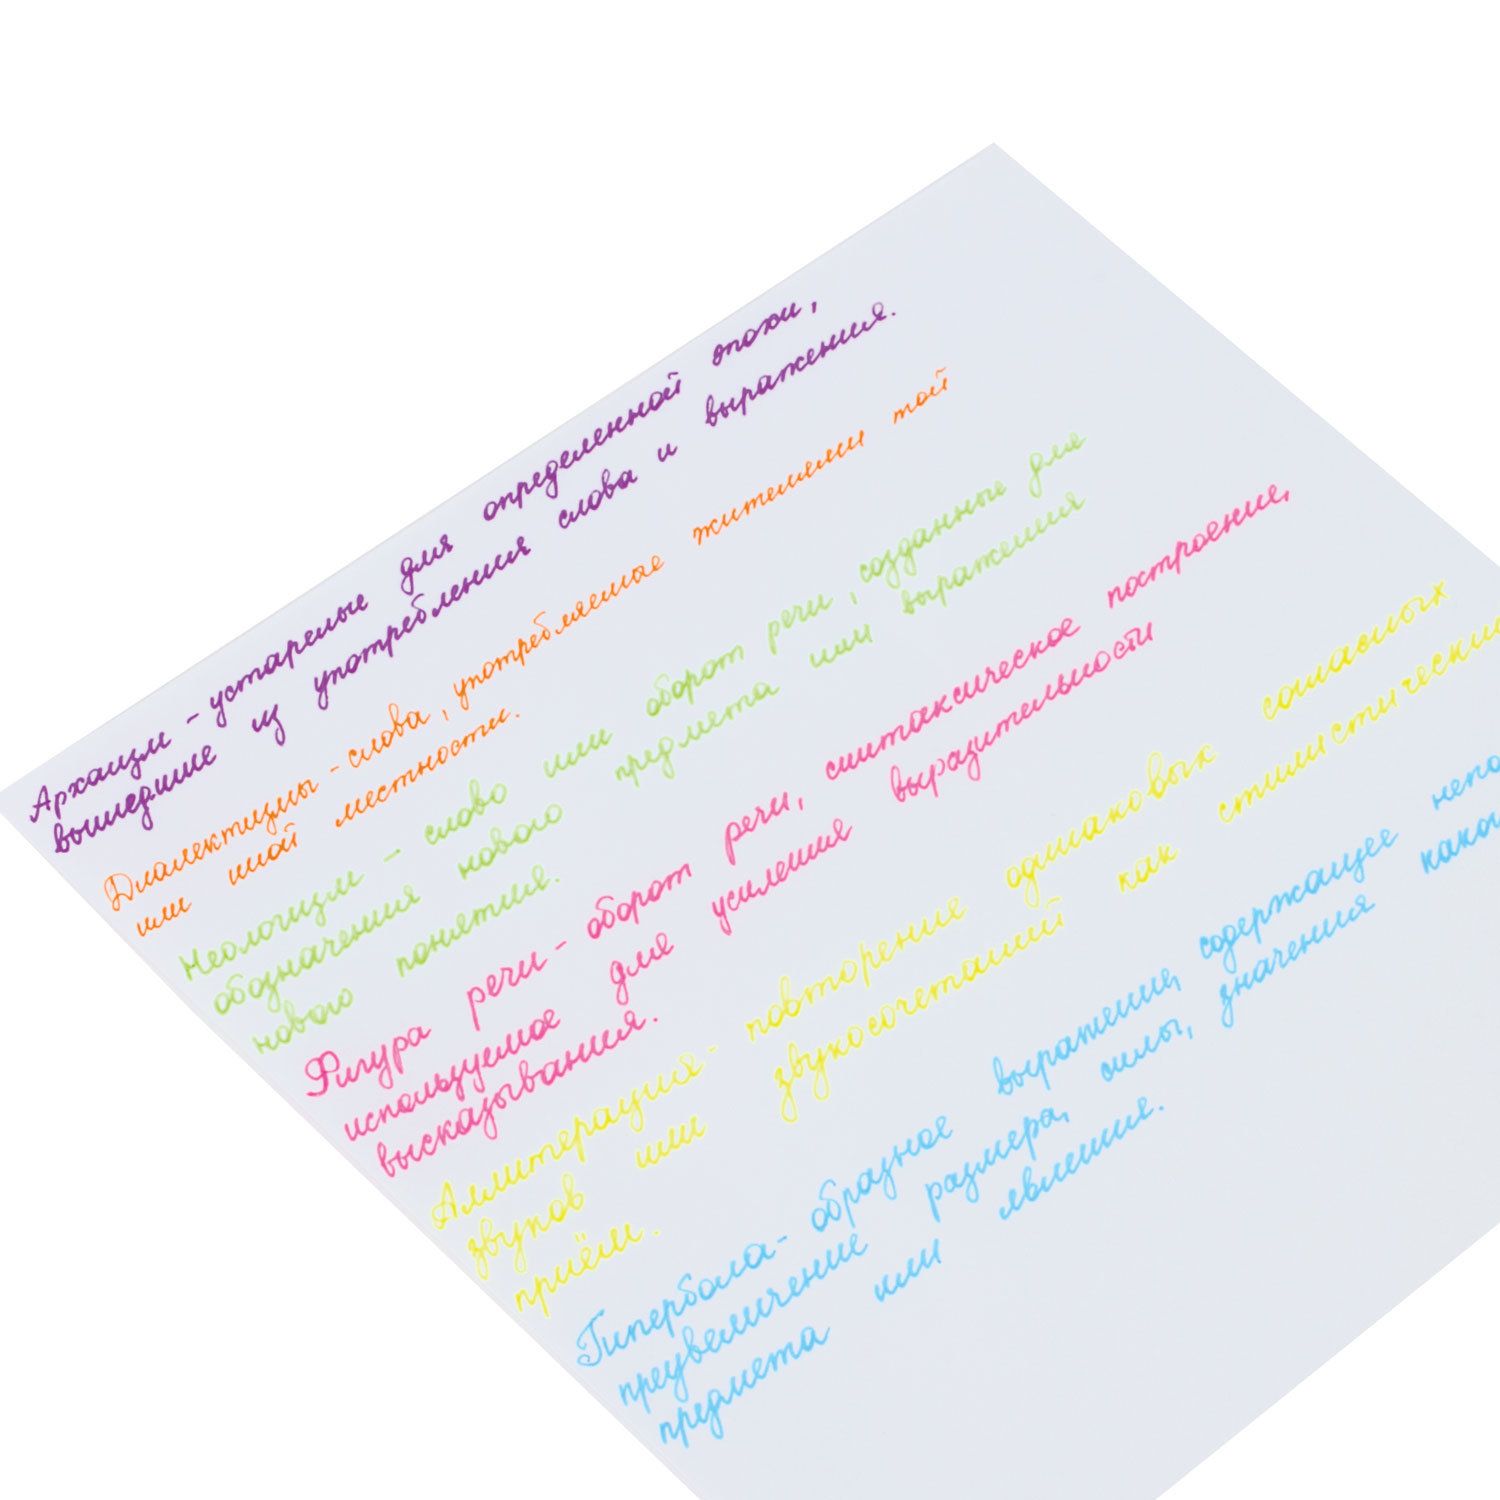 Архаизм - устарелые для определенной эпохи,
вышедшие из употребления слова и выражения.
Диалектизмы - слова, употребляемые жителями той
или иной местности.
Неологизм - слово или оборот речи, созданные для
обозначения нового предмета или выражения
нового понятия.
Фигура речи - оборот речи, синтаксическое построение,
используемое для усиления выразительности
высказывания.
Аллитерация - повторение одинаковых согласных
звуков или звукосочетаний как стилистический
приём.
Гипербола - образное выражение, содержащее
преувеличение размера, силы, значения
предмета или явления.